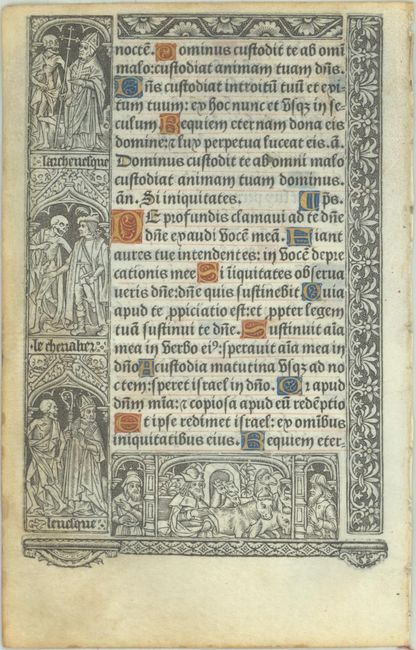 noctē. Dominus custodit te ab omi
malo: custodiat animam tuam dn̄s.
Dn̄s custodiat introitū tuū et exi
tum tuum: ex hoc nunc et vsq3 in se
culum. Requiem eternam dona eis
domine: ⁊ lux perpetua luceat eis. a̅.
Dominus custodit te ab omni malo
custodiat animam tuam dominus.
an̄. Si iniquitates. ps̄.
DE profundis clamaui ad te dn̄e
dn̄e exaudi vocē meā. Fiant
aures tue intendentes: in vocē depre
cationis mee Si īniquitates obserua
ueris dn̄e: dn̄e quis sustinebit Quia
apud te ꝓpiciatio est: et ꝓpter legem
tuā sustinui te dn̄e. Sustinuit aīa
mea in verbo ei⁹: sperauit aīa mea in
dn̄o A custodia matutina vsq3 ad no
ctem: speret israel in dn̄o. Quia apud
dn̄m mīa: ⁊ copiosa apud eū redēptio
Et ipse redimet israel: ex omībus
iniquitatibus eius. Requiem eter-
larcheuesque
le cheualier
leuesque